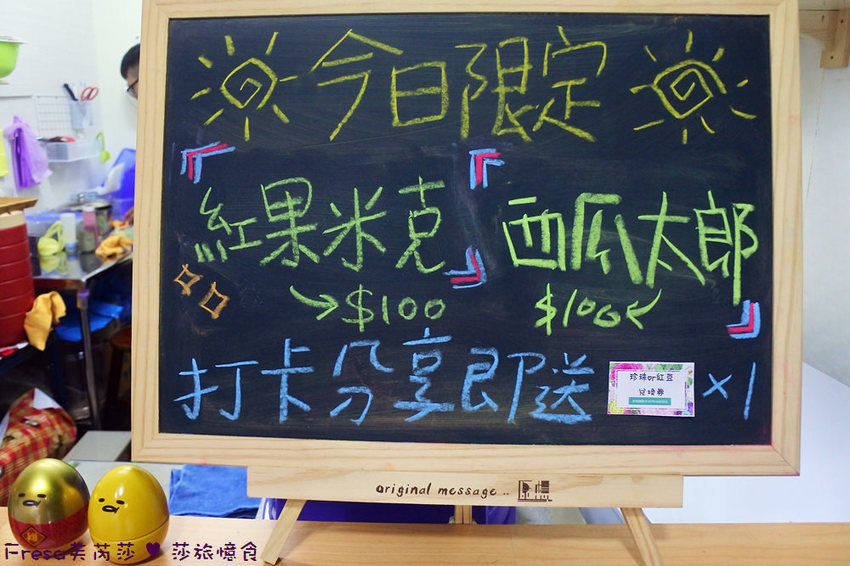 今日限定
『紅果米克』 『西瓜太郎』
→$100 $100←
打卡分享即送 珍珠or紅豆 兌換券 ×1
original message..
Fresa芙芮莎 ♥ 莎旅憶食